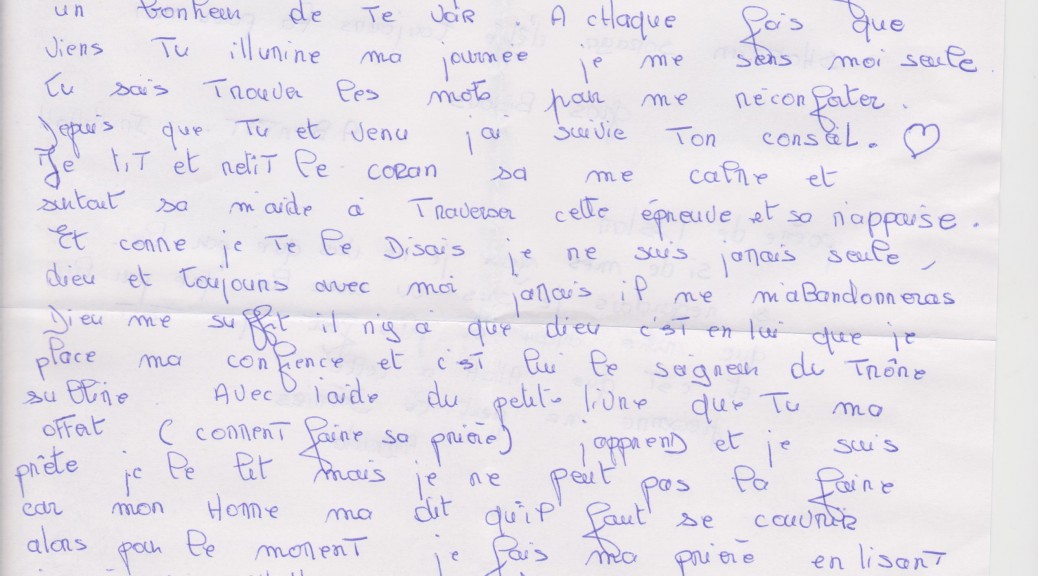 un bonheur de Te voir. A chaque fois que
viens Tu illumine ma journée je me sens moi seule
tu sais Trouver les mots pour me réconforter.
Depuis que Tu et venu j'ai suivie Ton conseil. ♡
Je liT et reliT le coran sa me calme et
surtout sa m'aide a Traverser cette épreuve et sa m'appaise.
Et comme je Te le Disais je ne suis jamais seule,
dieu et Toujours avec moi jamais il me m'aBandonneras
Dieu me suffit il n'y a que dieu c'est en lui que je
place ma confience et c'est lui le seigneur du Trône
sublime Avec l'aide du petit livre que Tu ma
offert (commenT faire sa prière) j'apprenD et je suis
prête je le lit mais je ne peut pas la faire
car mon Homme ma dit qu'il faut se couvrir
alors pour le momenT je fais ma prière en lisanT